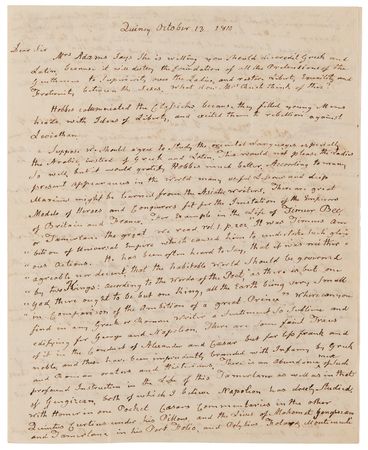 Quincy October 13. 1810
Dear Sir
Mrs Adams says she is willing you should discredit Greek and
Latin, because it will destroy the foundation of all the Pretensions of the
Gentlemen to superiority over the Ladies, and restore Liberty, Equality and
Fraternity between the Sexes. What does Mrs Rush think of this?
Hobbes calumniated the Classicks because they filled young Mens
heads with Ideas of Liberty, and excited them to rebellion against
Leviathan.
Suppose We should agree to study the oriental Languages especially
the Arabic, instead of Greek and Latin. This would not please the Ladies
so well, but it would gratify Hobbes much better. According to many
present appearances in the World many usefull Lessons and deep
Maxims might be learned from the Asiatic writers. There are great
Models of Heroes and Conquerors fit for the Imitation of the Emperors
of Britain and France. For Example in the Life of Timur Bec
or Tamerlane the great We read vol. 1. p. 202. It was Timurs am-
"bition of Universal Empire which caused him to undertake such glori
"ous Actions. He has been often heard to say, that it was neither a
"greable nor decent, that the habitable World should be governed
"by two Kings: according to the Words of the Poet, "as there is but one
"God, there ought to be but one King, all the Earth being very small
"in Comparison of the Ambition of a great Prince." where can you
find in any Greek or Roman Writer a Sentiment so sublime and
edifying for George and Napolion. There are some faint Traces
of it in the Conduct of Alexander and Cæsar but far less frank and
noble, and these have been imprudently branded with Infamy by Greek
and Roman orators and Historians. There is an abundance of such
profound Instruction in the Life of this Tamerlane as well as in that
of Gengizcan, both of which I believe Napolion has closely studied.
With Homer in one Pocket Cæsars Commentaries in the other
Quintus Curtius under his Pillow, and the Lives of Mahomet Gengizcan
and Tamerlane in his Port Folio, and Polybius Folard, Montecuculi